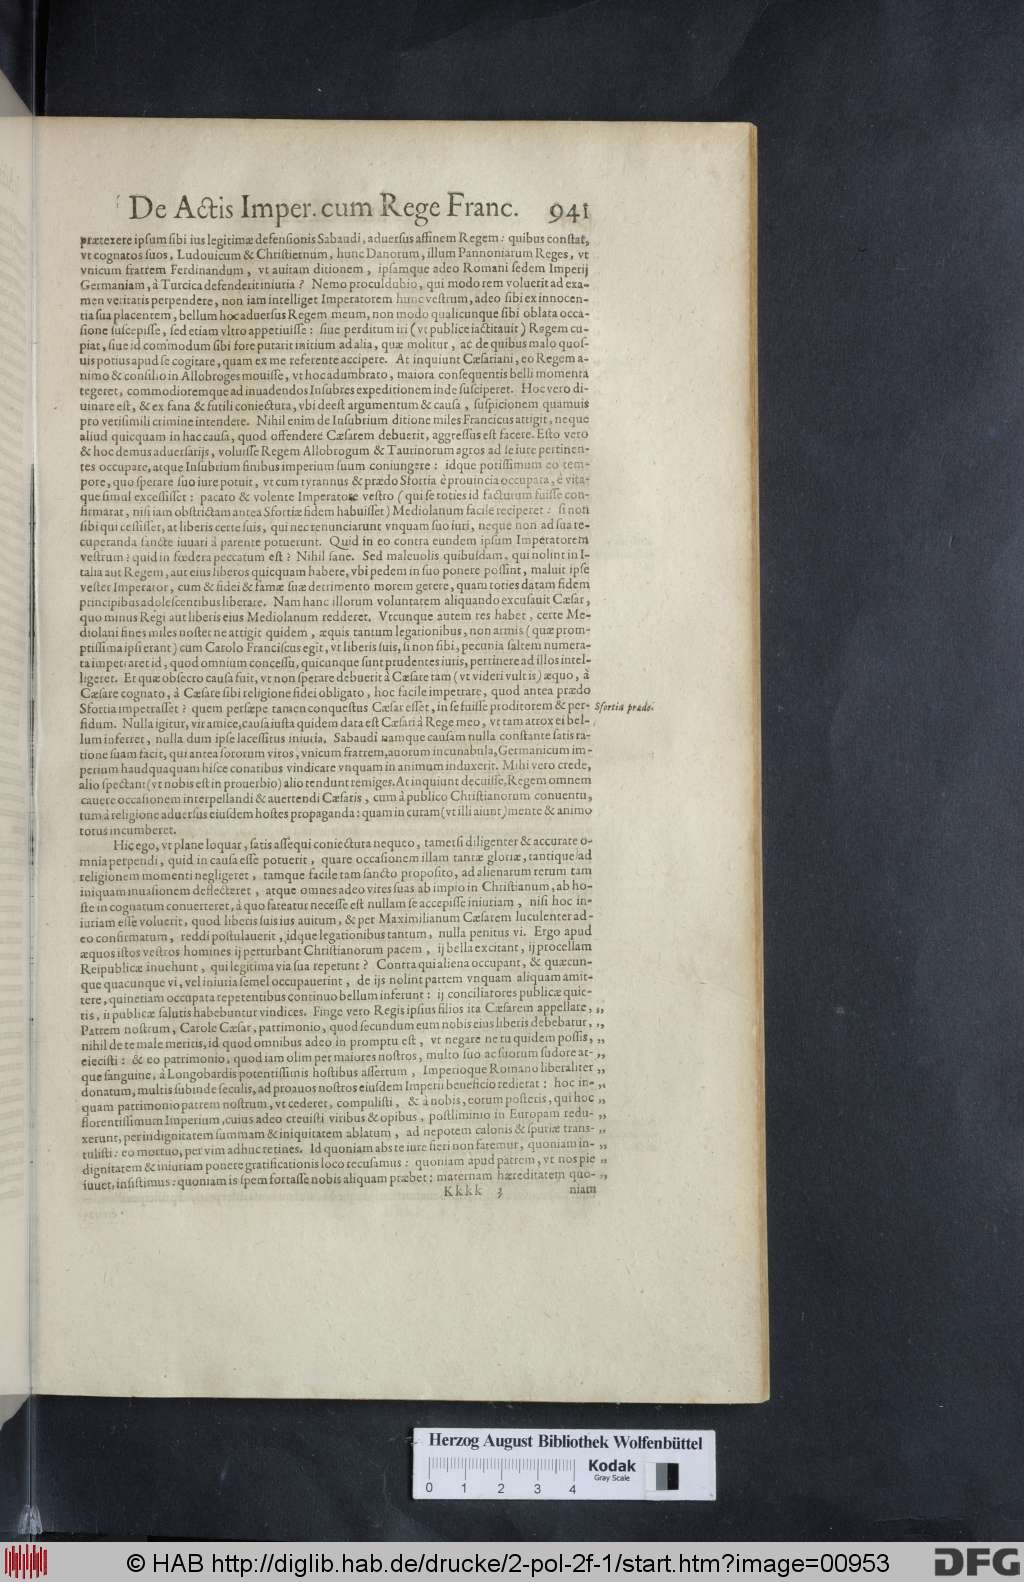 De Actis Imper. cum Rege Franc. 941
prætexere ipsum sibi ius legitimæ defensionis Sabaudi, aduersus affinem Regem: quibus constat,
vt cognatos suos, Ludouicum & Christiernum, hunc Danorum, illum Pannoniarum Reges, vt
vnicum fratrem Ferdinandum, vt auitam ditionem, ipsamque adeo Romani sedem Imperij
Germaniam, à Turcica defenderit iniuria? Nemo proculdubio, qui modo rem voluerit ad exa-
men veritatis perpendere, non iam intelliget Imperatorem hunc vestrum, adeo sibi ex innocen-
tia sua placentem, bellum hoc aduersus Regem meum, non modo qualicunque sibi oblata occa-
sione suscepisse, sed etiam vltro appetiuisse: siue perditum iri (vt publice iactitauit) Regem cu-
piat, siue id commodum sibi fore putarit initium ad alia, quæ molitur, ac de quibus malo quos-
uis potius apud se cogitare, quam ex me referente accipere. At inquiunt Cæsariani, eo Regem a-
nimo & consilio in Allobroges mouisse, vt hoc adumbrato, maiora consequentis belli momenta
tegeret, commodioremque ad inuadendos Insubres expeditionem inde susciperet. Hoc vero di-
uinare est, & ex fana & futili coniectura, vbi deest argumentum & causa, suspicionem quamuis
pro verisimili crimine intendere. Nihil enim de Insubrium ditione miles Francicus attigit, neque
aliud quicquam in hac causa, quod offendere Cæsarem debuerit, aggressus est facere. Esto vero
& hoc demus aduersarijs, voluisse Regem Allobrogum & Taurinorum agros ad se iure pertinen-
tes occupare, atque Insubrium finibus imperium suum coniungere: idque potissimum eo tem-
pore, quo sperare suo iure potuit, vt cum tyrannus & prædo Sfortia è prouincia occupata, è vita-
que simul excessisset: pacato & volente Imperatore vestro (qui se toties id facturum fuisse con-
firmarat, nisi iam obstrictam antea Sfortiæ fidem habuisset) Mediolanum facile reciperet: si non
sibi qui cessisset, at liberis certe suis, qui nec renunciarunt vnquam suo iuri, neque non ad sua re-
cuperanda sancte iuuari à parente potuerunt. Quid in eo contra eundem ipsum Imperatorem
vestrum? quid in fœdera peccatum est? Nihil sane. Sed maleuolis quibusdam, qui nolint in I-
talia aut Regem, aut eius liberos quicquam habere, vbi pedem in suo ponere possint, maluit ipse
vester Imperator, cum & fidei & famæ suæ detrimento morem gerere, quam toties datam fidem
principibus adolescentibus liberare. Nam hanc illorum voluntatem aliquando excusauit Cæsar,
quo minus Regi aut liberis eius Mediolanum redderet. Vtcunque autem res habet, certe Me-
diolani fines miles noster ne attigit quidem, æquis tantum legationibus, non armis (quæ prom-
ptissima ipsi erant) cum Carolo Franciscus egit, vt liberis suis, si non sibi, pecunia saltem numera-
ta impetraret id, quod omnium concessu, quicunque sunt prudentes iuris, pertinere ad illos intel-
ligeret. Et quæ obsecro causa fuit, vt non sperare debuerit à Cæsare tam (vt videri vult is) æquo, à
Cæsare cognato, à Cæsare sibi religione fidei obligato, hoc facile impetrare, quod antea prædo
Sfortia impetrasset? quem persæpe tamen conquestus Cæsar esset, in se fuisse proditorem & per- Sfortia prædo.
fidum. Nulla igitur, vir amice, causa iusta quidem data est Cæsari à Rege meo, vt tam atrox ei bel-
lum inferret, nulla dum ipse lacessitus iniuria. Sabaudi namque causam nulla constante satis ra-
tione suam facit, qui antea sororum viros, vnicum fratrem, auorum incunabula, Germanicum im-
perium haudquaquam hisce conatibus vindicare vnquam in animum induxerit. Mihi vero crede,
alio spectant (vt nobis est in prouerbio) alio tendunt remiges. At inquiunt decuisse, Regem omnem
cauere occasionem interpellandi & auertendi Cæsaris, cum à publico Christianorum conuentu,
tum à religione aduersus eiusdem hostes propaganda: quam in curam (vt illi aiunt) mente & animo
totus incumberet.
Hic ego, vt plane loquar, satis assequi coniectura nequeo, tametsi diligenter & accurate o-
mnia perpendi, quid in causa esse potuerit, quare occasionem illam tantæ gloriæ, tantique ad
religionem momenti negligeret, tamque facile tam sancto proposito, ad alienarum rerum tam
iniquam inuasionem deflecteret, atque omnes adeo vires suas ab impio in Christianum, ab ho-
ste in cognatum conuerteret, à quo fateatur necesse est nullam se accepisse iniuriam, nisi hoc in-
iuriam esse voluerit, quod liberis suis ius auitum, & per Maximilianum Cæsarem luculenter ad-
eo confirmatum, reddi postulauerit, idque legationibus tantum, nulla penitus vi. Ergo apud
æquos istos vestros homines ij perturbant Christianorum pacem, ij bella excitant, ij procellam
Reipublicæ inuehunt, qui legitima via sua repetunt? Contra qui aliena occupant, & quæcun-
que quacunque vi, vel iniuria semel occupauerint, de ijs nolint partem vnquam aliquam amit-
tere, quinetiam occupata repetentibus continuo bellum inferunt: ij conciliatores publicæ quie-
tis, ii publicæ salutis habebuntur vindices. Finge vero Regis ipsius filios ita Cæsarem appellare, „
Patrem nostrum, Carole Cæsar, patrimonio, quod secundum eum nobis eius liberis debebatur, „
nihil de te male meritis, id quod omnibus adeo in promptu est, vt negare ne tu quidem possis, „
eiecisti: & eo patrimonio, quod iam olim per maiores nostros, multo suo ac suorum sudore at- „
que sanguine, à Longobardis potentissimis hostibus assertum, Imperioque Romano liberaliter „
donatum, multis subinde seculis, ad proauos nostros eiusdem Imperii beneficio redierat: hoc in- „
quam patrimonio patrem nostrum, vt cederet, compulisti, & à nobis, eorum posteris, qui hoc „
florentissimum Imperium, cuius adeo creuisti viribus & opibus, postliminio in Europam redu- „
xerunt, per indignitatem summam & iniquitatem ablatum, ad nepotem calonis & spuriæ trans- „
tulisti: eo mortuo, per vim adhuc retines. Id quoniam abs te iure fieri non fatemur, quoniam in- „
dignitatem & iniuriam ponere gratificationis loco recusamus: quoniam apud patrem, vt nos pie „
iuuet, insistimus: quoniam is spem fortasse nobis aliquam præbet: maternam hæreditatem quo- „
Kkkk 3 niam
Herzog August Bibliothek Wolfenbüttel
Kodak
Gray Scale
0 1 2 3 4
© HAB http://diglib.hab.de/drucke/2-pol-2f-1/start.htm?image=00953
DFG